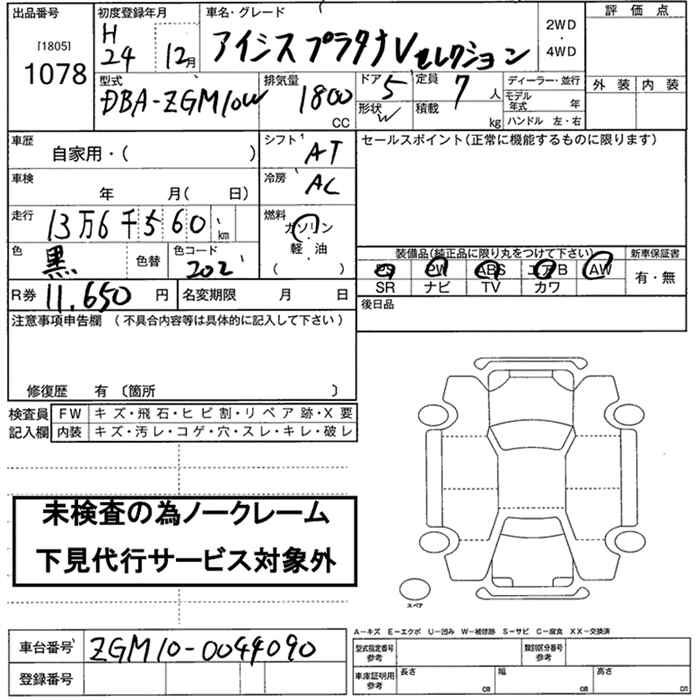 出品番号 初度登録年月 車名・グレード 評価点
[1805] 1078
H 24 12月 アイシス プラタナVセレクション 2WD・4WD
型式 排気量 ドア 5 定員 7人 ディーラー・並行 外装 内装
DBA-ZGM10W 1800 CC 形状 W 積載 kg モデル年式 年
ハンドル 左・右
車歴 自家用・( ) シフト AT セールスポイント(正常に機能するものに限ります)
車検 年 月( 日) 冷房 AC
走行 13万6千560 km 燃料 ガソリン・軽・油 ( )
色 黒 色替 色コード 202 装備品(純正品に限り丸をつけて下さい) 新車保証書
PS PW ABS エアB AW 有・無
SR ナビ TV カワ
R券 11,650円 名変期限 月 日 後日品
注意事項申告欄 (不具合内容等は具体的に記入して下さい)
修復歴 有 〔箇所 〕
検査員 FW キズ・飛石・ヒビ割・リペア跡・X要
記入欄 内装 キズ・汚レ・コゲ・穴・スレ・キレ・破レ
未検査の為ノークレーム
下見代行サービス対象外
スペア
A-キズ E-エクボ U-凹み W-補修跡 S-サビ C-腐食 XX-交換済
車台番号 ZGM10-0044090 型式指定番号 参考 類別区分番号 参考
登録番号 車庫証明用 参考 長さ cm 幅 cm 高さ cm